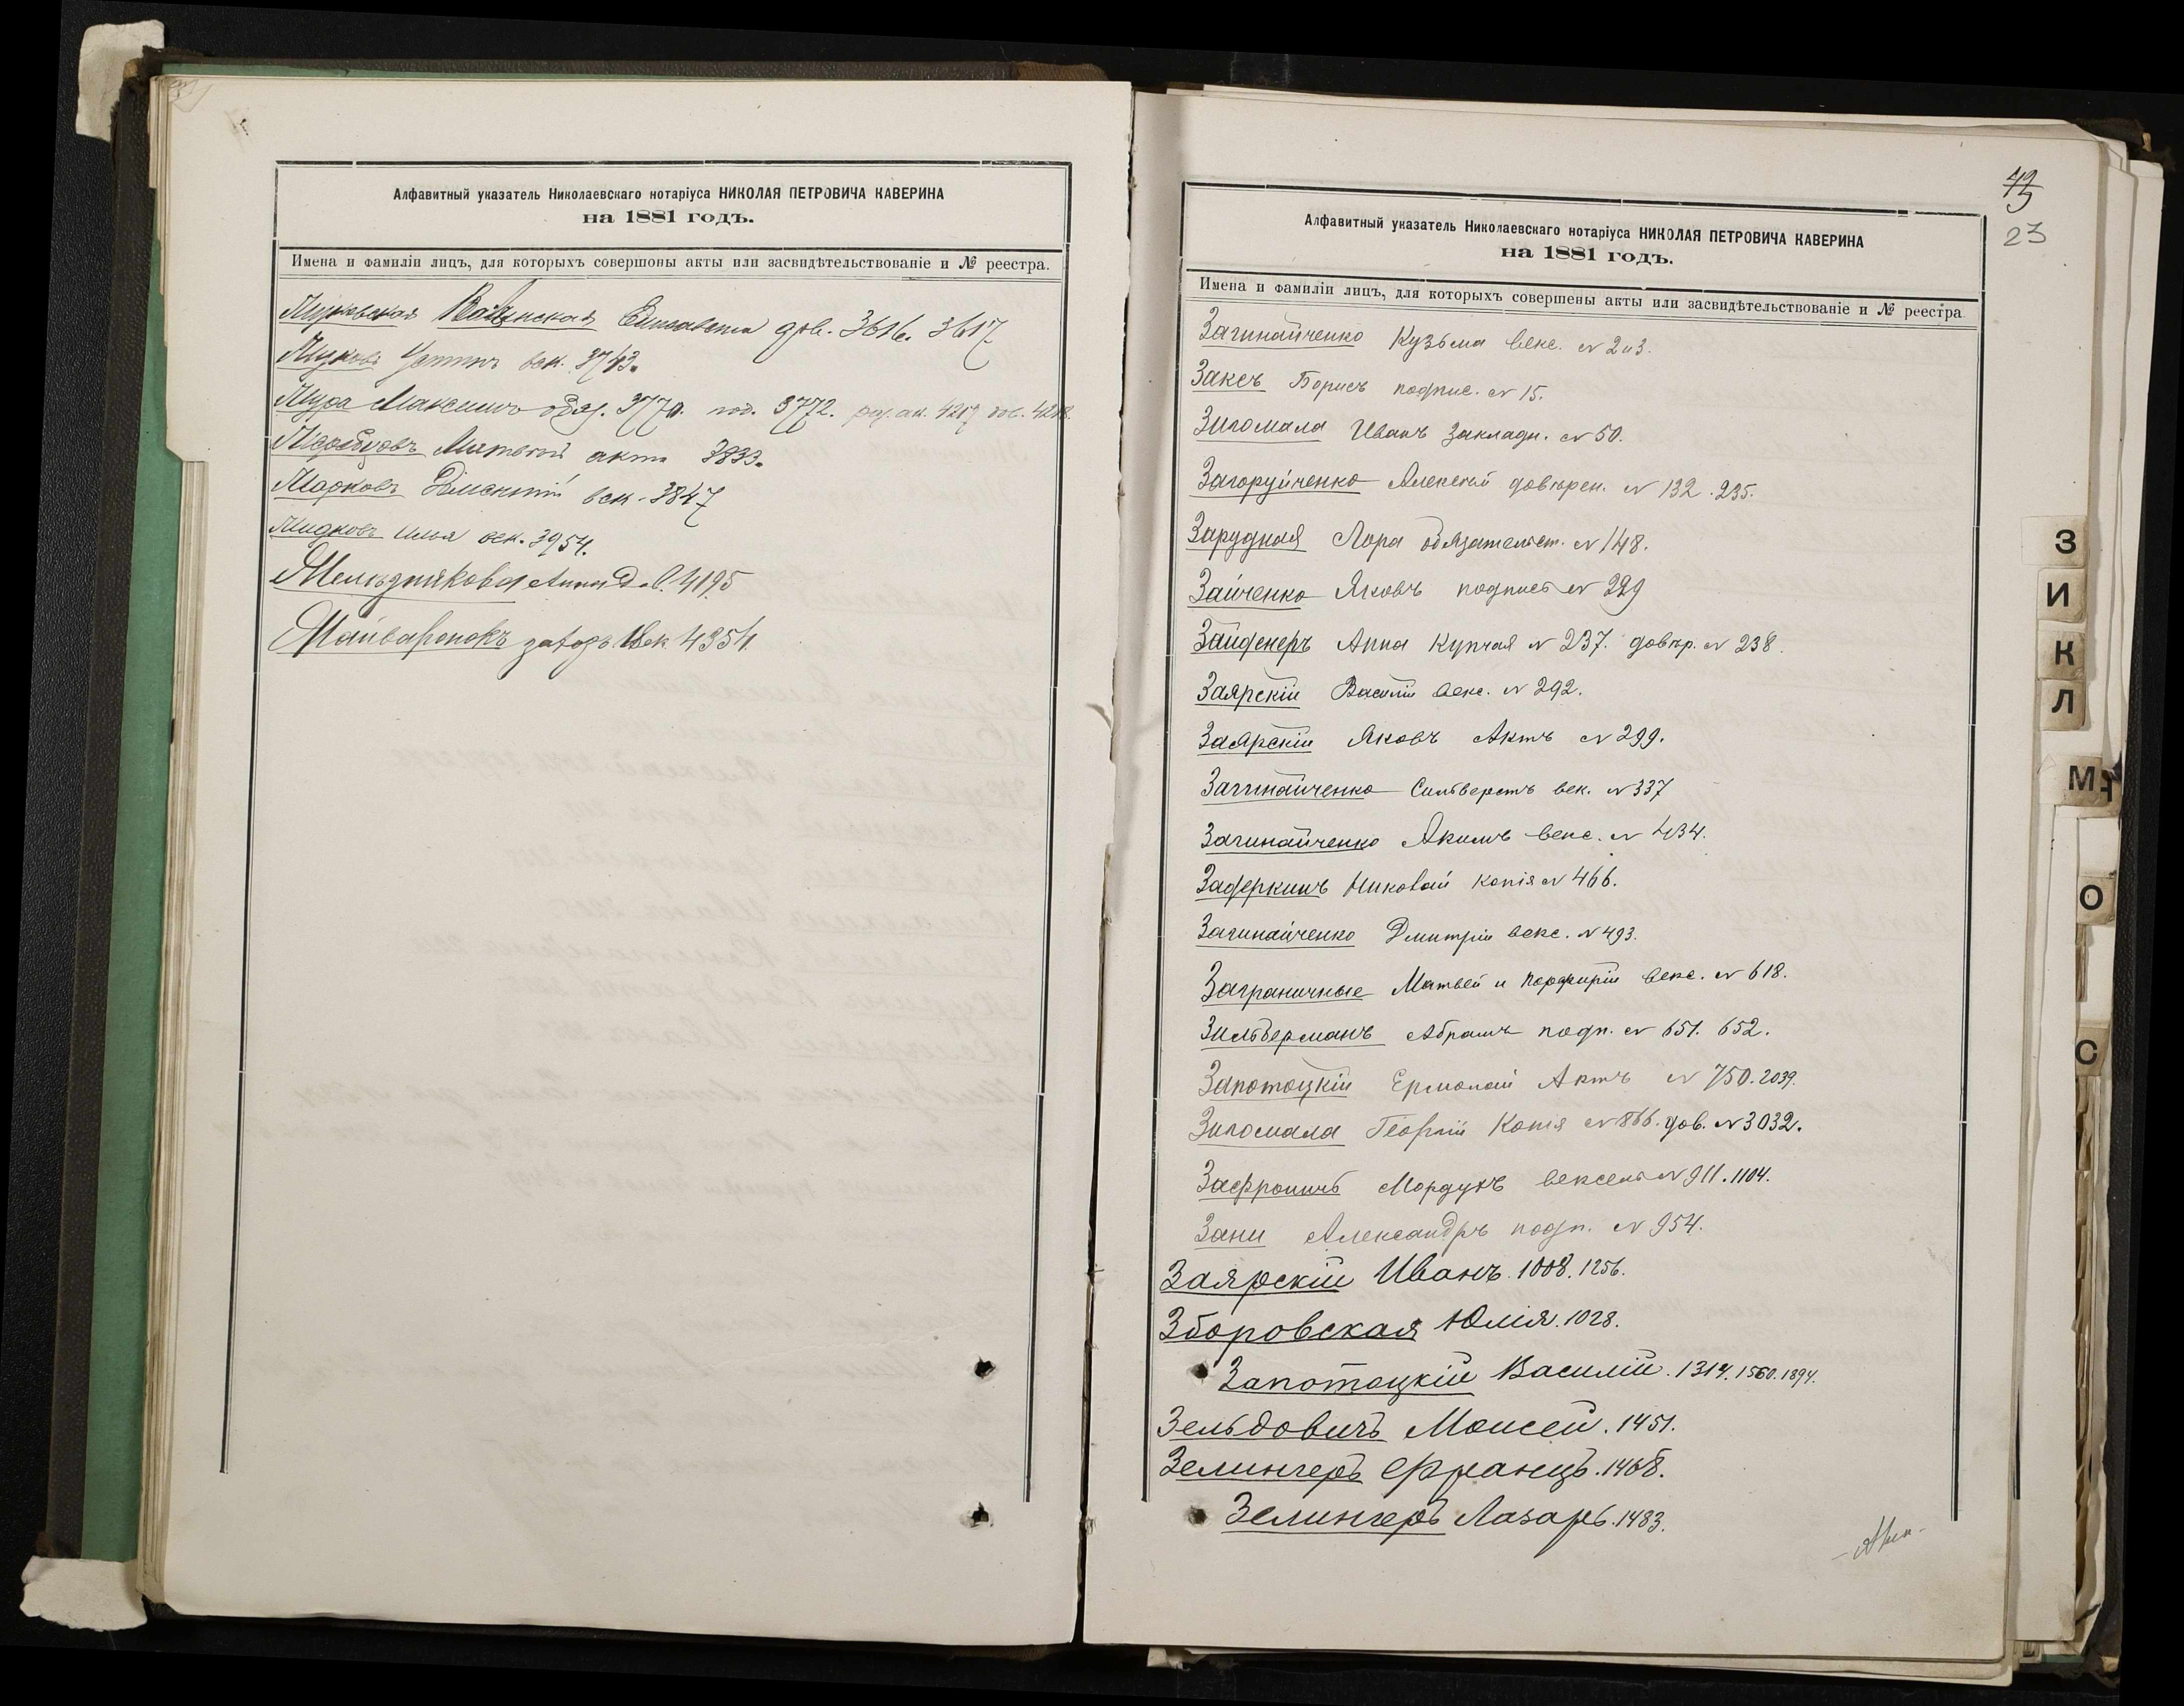 Алфавитный указатель Николаевскаго нотаріуса НИКОЛАЯ ПЕТРОВИЧА КАВЕРИНА
на 1881 годъ.
Имена и фамиліи лицъ, для которыхъ совершоны акты или засвидѣтельствованіе и № реестра.
Елисавета дов. 3616. 3617
Устинъ век. 3743.
Мура Максимъ обяз. 3770. под. 3772. раз. ак. 4217 дов. 4218.
Матвѣй актъ 3833.
Марковъ век. 3847
Мидковъ Илья век. 3954.
Анна Дов. 4195
заводъ Век. 4354
49
23
Алфавитный указатель Николаевскаго нотаріуса НИКОЛАЯ ПЕТРОВИЧА КАВЕРИНА
на 1881 годъ.
Имена и фамиліи лицъ, для которыхъ совершены акты или засвидѣтельствованіе и № реестра
Загинайченко Кузьма векс. № 2 и 3.
Заксъ Борисъ подпис. № 15.
Зигомала Иванъ Закладн. № 50.
Загоруйченко Алексѣй довѣрен. № 132. 235.
Зарудная Лора обязательст. № 148.
Зайченко Яковъ подпись № 229
Зайденеръ Анна Купчая № 237. довѣр. № 238.
Заярскій Василій векс. № 292.
Заярскій Яковъ Актъ № 299.
Загинайченко Сильверстъ век. № 337
Загинайченко Якимъ векс. № 434.
Задеркинъ Николай копія № 466.
Загинайченко Дмитрій векс. № 493.
Заграничные Матвей и Порфирій векс. № 618.
Зильберманъ Абрамъ подп. № 651. 652.
Запотоцкій Ермолай Актъ № 750. 2039.
Зигомала Георгій Копія № 866. дов. № 3032.
Мордухъ вексель № 911. 1104.
Зани Александръ подп. № 954.
Заярскій Иванъ. 1008. 1256.
Зборовская Юлія. 1028.
Запотоцкій Василій. 1314. 1560. 1894.
Зельдовичъ Моисей. 1451.
Зелингеръ Францъ. 1468.
Зелингеръ Лазарь. 1483.
З
И
К
Л
М
О
С